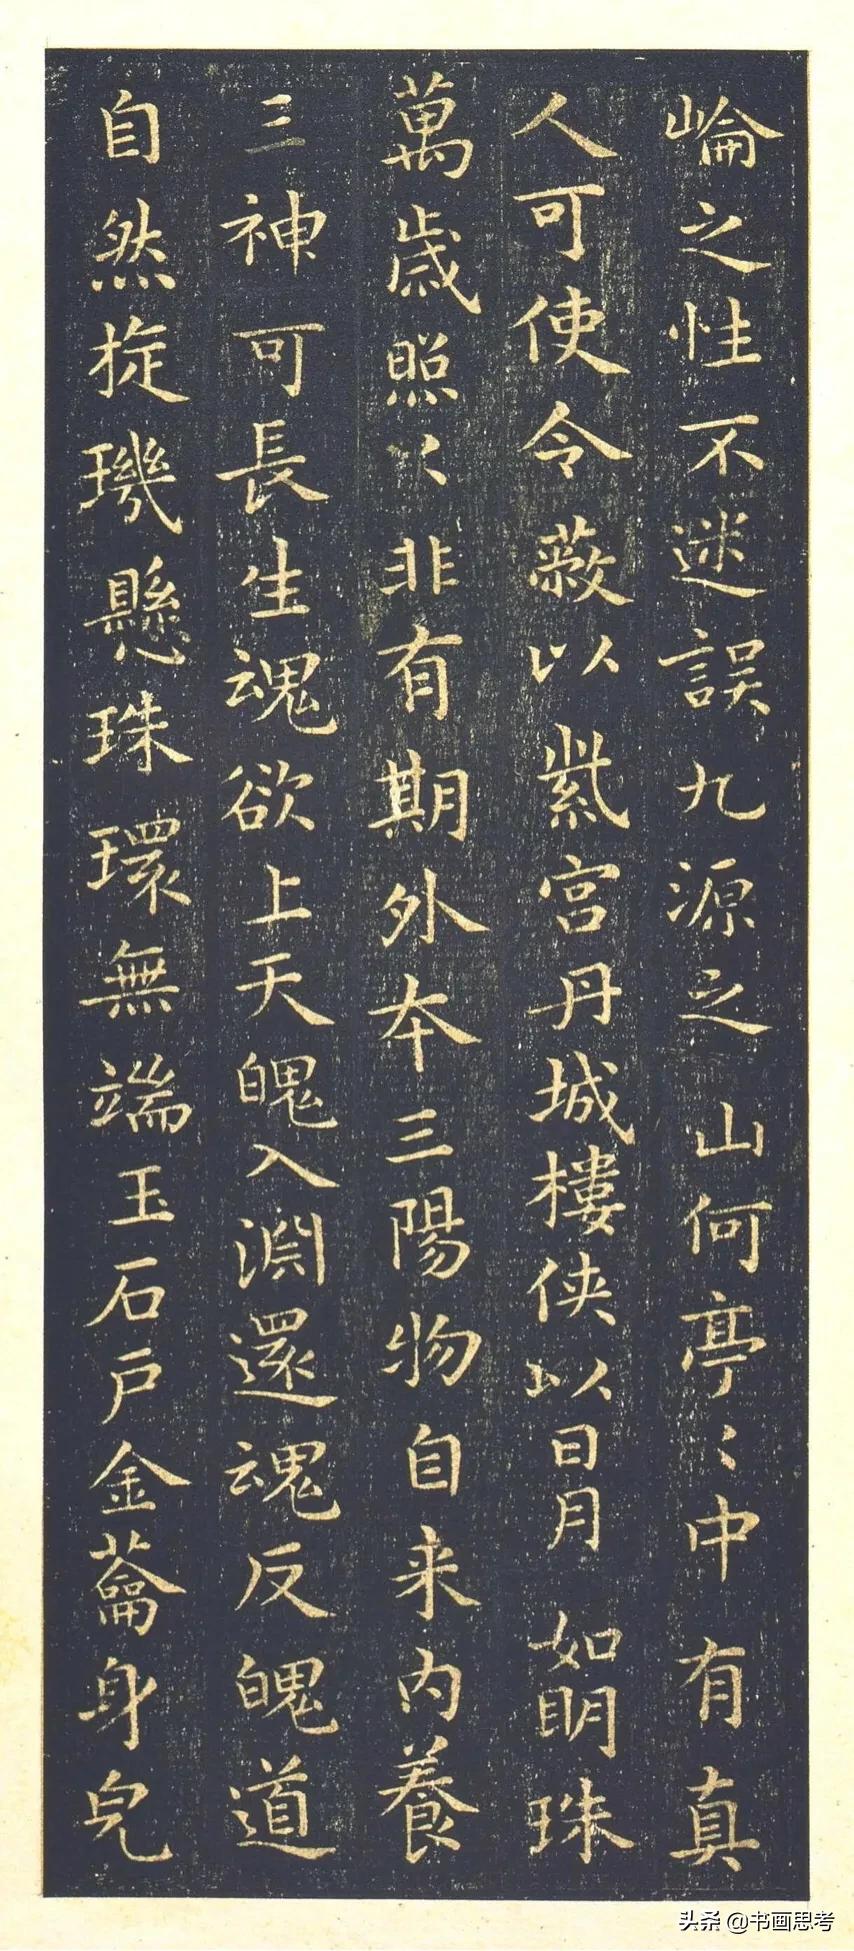 崘之性不迷誤九源之山何亭〻中有真
人可使令蔽以紫宫丹城樓侠以日月如明珠
萬歲照〻非有期外本三陽物自来内養
三神可長生魂欲上天魄入渊還魂反魄道
自然旋璣懸珠環無端玉石戶金蘥身皃
头条 @书画思考